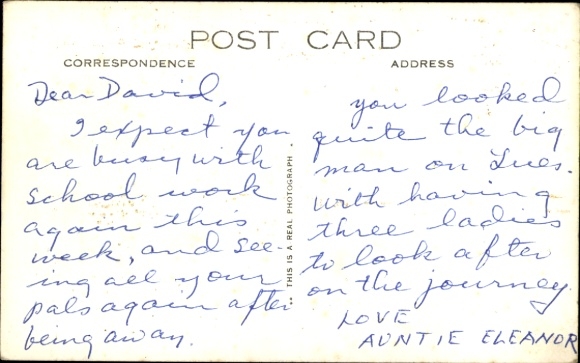 POST CARD
CORRESPONDENCE
ADDRESS
Dear David,
I expect you
are busy with
school work
again this
week, and see-
ing all your
pals again after
being away.
THIS IS A REAL PHOTOGRAPH
you looked
quite the big
man on Tues.
with having
three ladies
to look after
on the journey.
LOVE
AUNTIE ELEANOR